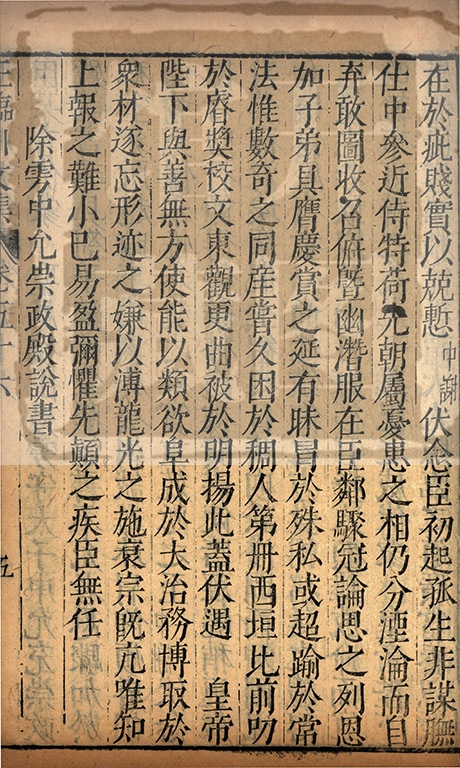 在於疵賤實以兢慙中謝 伏念臣初起孤生非謀膴
仕中參近侍特荷先朝屬憂患之相仍分湮淪而自
弃敢圖收召俯曁幽潛服在臣鄰驟冠論思之列恩
加子弟具膺慶賞之延有昧冒於殊私或超踰於常
法惟數奇之同産嘗久困於稠人第冊西垣比前叨
於睿奬校文東觀更曲被於明揚此蓋伏遇 皇帝
陛下與善無方使能以類欲阜成於大治務博取於
衆材遂忘形迹之嫌以溥龍光之施衰宗旣亢唯知
上報之難小已易盈彌懼先顛之疾臣無任
除雱中允崇政殿說書
王臨川文集 卷五十六 五